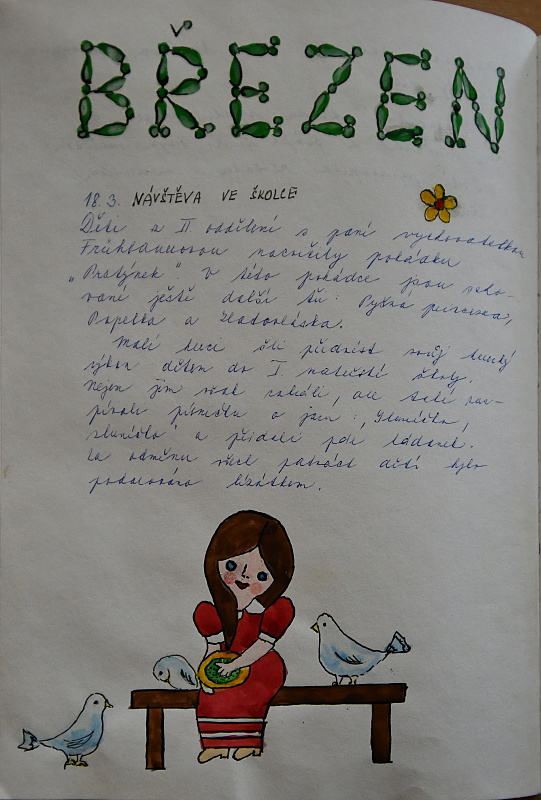 BŘEZEN
18.3. NÁVŠTĚVA VE ŠKOLCE
Děti z II. oddělení s paní vychovatelkou
nacvičily pohádku
"Prstýnek". V této pohádce jsou scho-
vané ještě další tři: Pyšná princezna,
Popelka a Zlatovláska.
Malí herci šli přednést svůj herecký
výkon dětem do I. mateřské školy.
Nejen jim však zahráli, ale také zaz-
pívali písničku o jaru: "Sluníčko,
sluníčko" a přidali pár hádanek.
Za odměnu však patnáct dětí bylo
podarováno lízátkem.